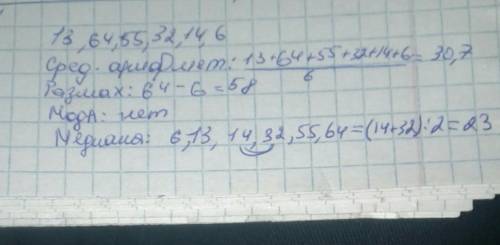 13, 64, 55, 32, 14, 6
Сред. арифмет: 13+64+55+32+14+6/6 = 30,7
Размах: 64 - 6 = 58
Мода: нет
Медиана: 6, 13, 14, 32, 55, 64 = (14+32):2 = 23